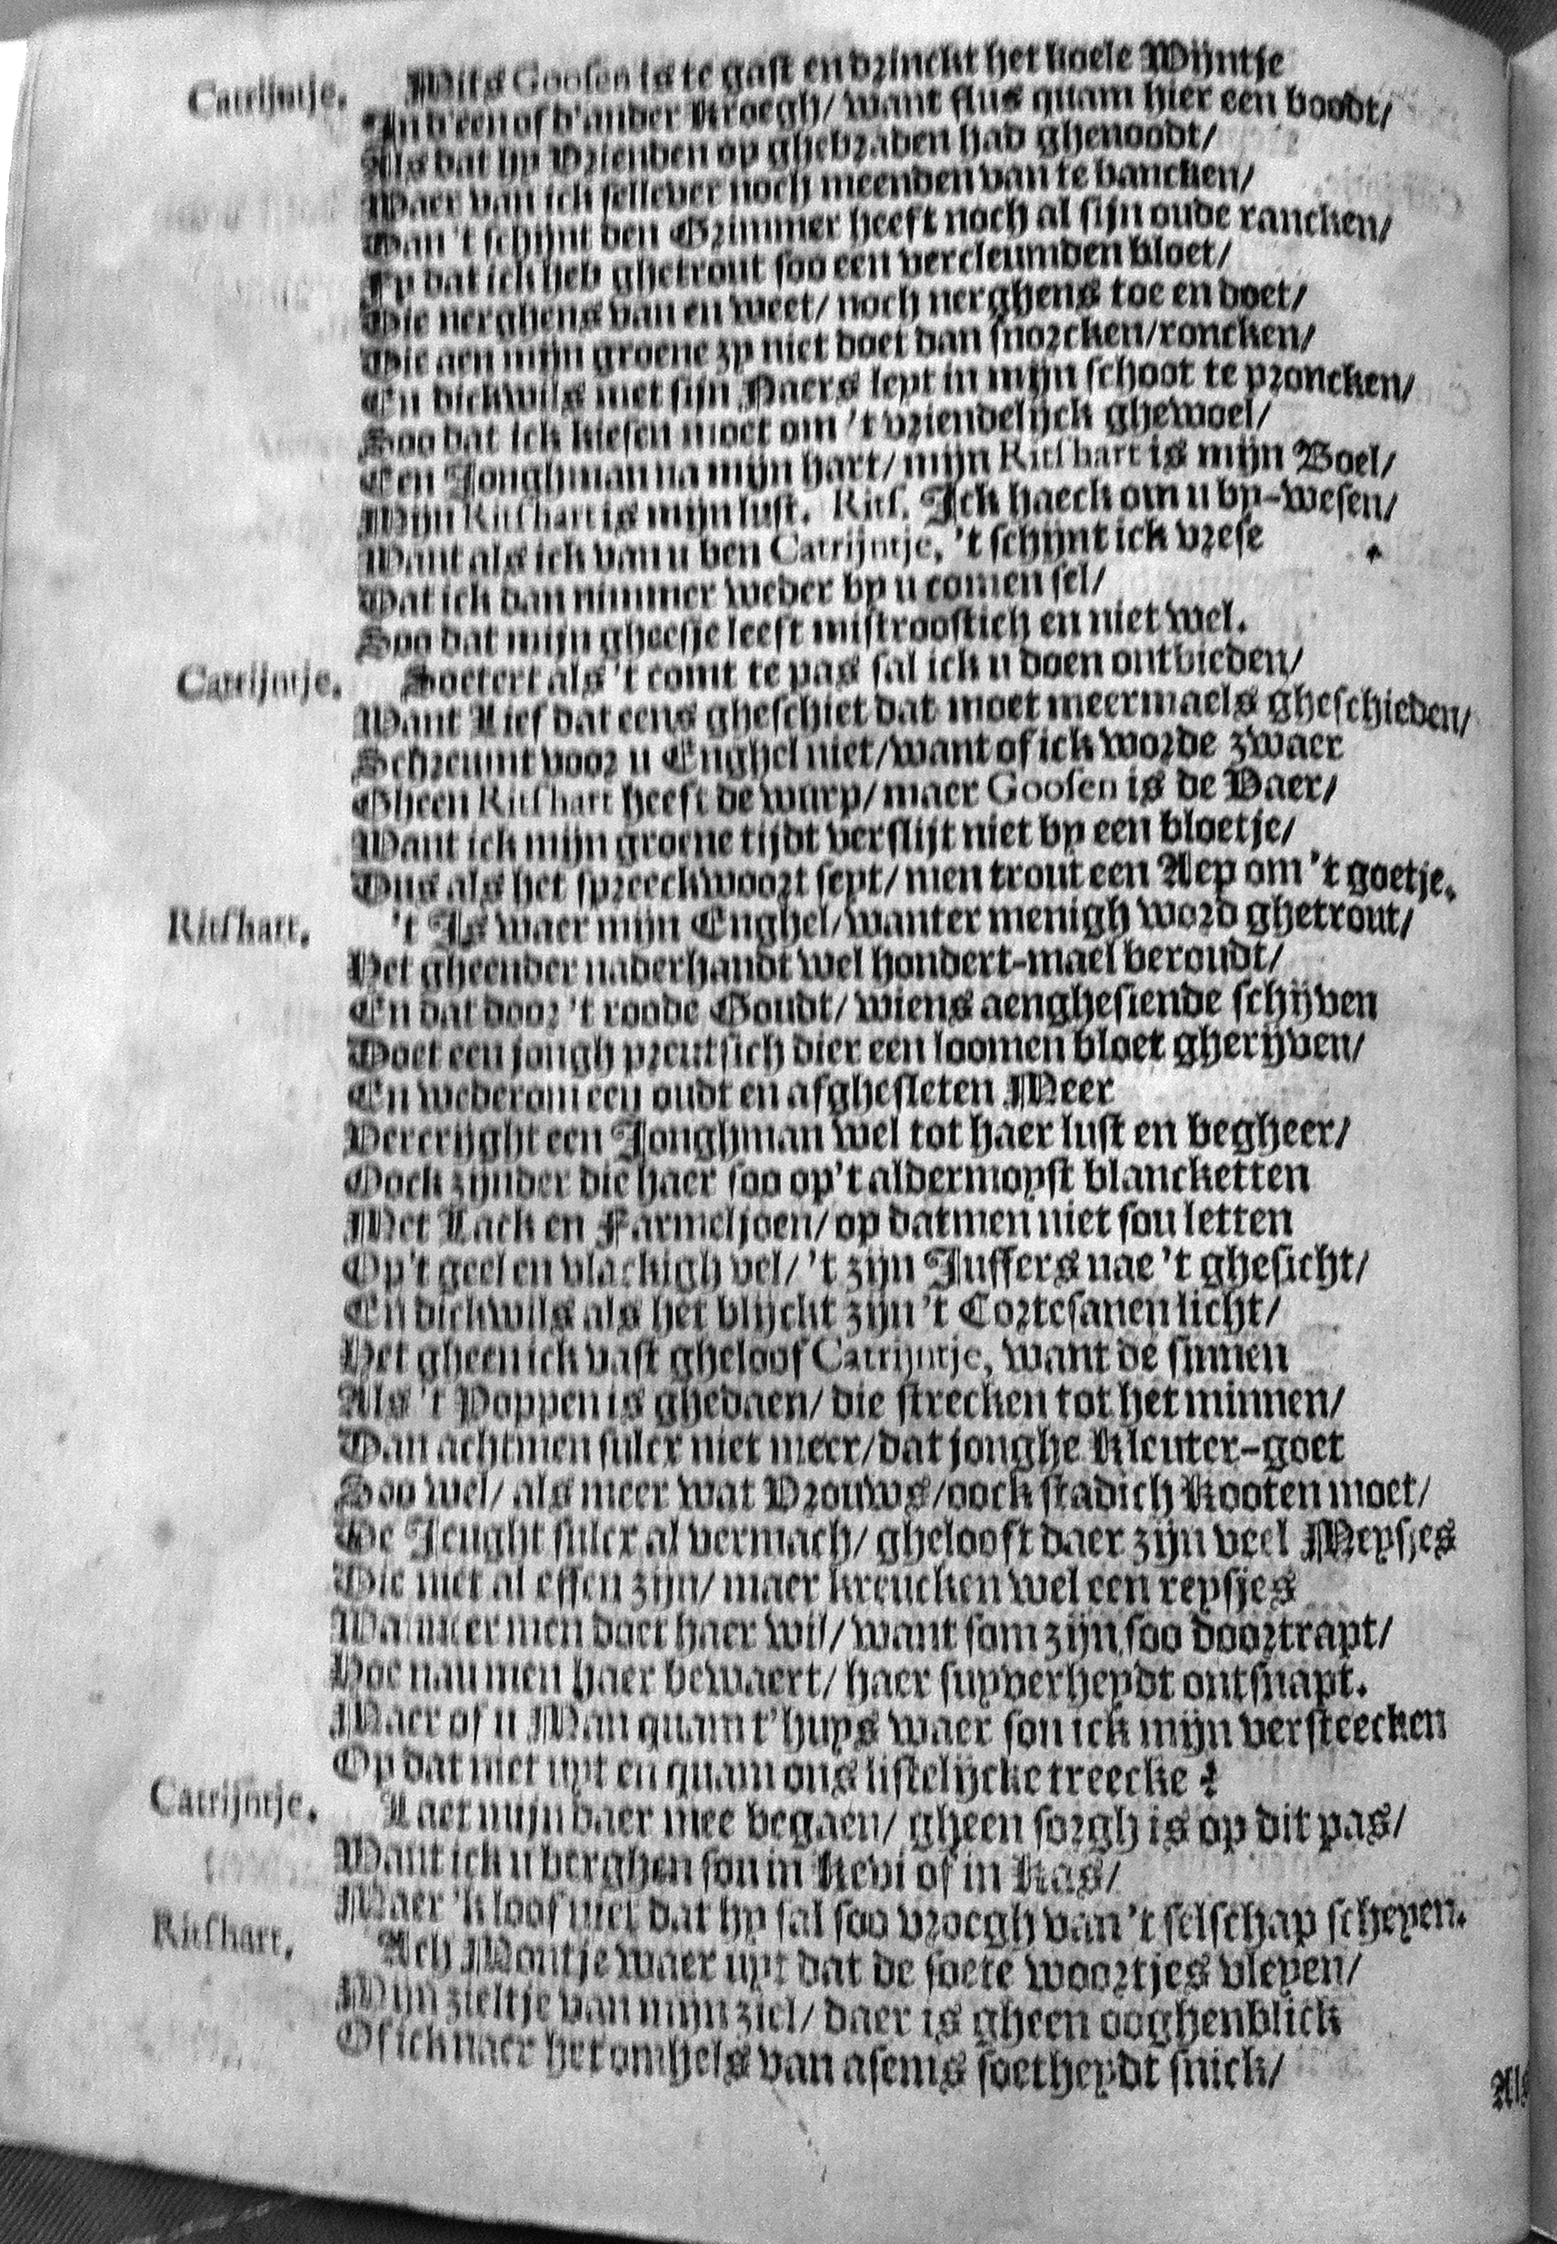 Catrijntje. Mits Goosen is te gast en drinckt het koele Wijntje
In d'een of d'ander Kroegh/ want flus quam hier een boodt/
Als dat hy Vrienden op ghebraden had ghenoodt/
Waer van ick sellever noch meenden van te bancken/
Dan 't schijnt den Grimmer heeft noch al sijn oude rancken/
Fy dat ick heb ghetrout soo een vercleumden bloet/
Die nerghens van en weet/ noch nerghens toe en doet/
Die aen mijn groene zy niet doet dan snorcken/roncken/
En dickwils met sijn Naers leyt in mijn schoot te proncken/
Soo dat ick kiesen moet om 't vriendelijck ghewoel/
Een Jonghman na mijn hart/ mijn Ritshart is mijn Boel/
Mijn Ritshart is mijn lust. Rits. Ick haeck om u by-wesen/
Want als ick van u ben Catrijntje, 't schijnt ick vrese
Dat ick dan nimmer weder by u comen sel/
Soo dat mijn gheesje leeft mistroostich en niet wel.
Catrijntje. Soetert als 't comt te pas sal ick u doen ontbieden/
Want Lief dat eens gheschiet dat moet meermaels gheschieden/
Schreumt voor u Enghel niet/want of ick worde zwaer
Gheen Ritshart heeft de wurp/ maer Goosen is de Vaer/
Want ick mijn groene tijdt verslijt niet by een bloetje/
Dus als het spreeckwoort seyt/ men trout een Aep om 't goetje.
Ritshart. 't Is waer mijn Enghel/wanter menigh word ghetrout/
Het gheender naderhandt wel hondert-mael beroudt/
En dat door 't roode Goudt/ wiens aenghesiende schijven
Doet een jongh preutsich dier een loomen bloet gherijven/
En wederom een oudt en afghesleten Meer
Vercrijght een Jonghman wel tot haer lust en begheer/
Oock zijnder die haer soo op't aldermoyst blancketten
Met Lack en Farmeljoen/ op datmen niet sou letten
Op't geel en vlackigh vel/ 't zijn Juffers nae 't ghesicht/
En dickwils als het blijckt zijn 't Cortesanen licht/
Het gheen ick vast gheloof Catrijntje, want de sinnen
Als 't Poppen is ghedaen/ die strecken tot het minnen/
Dan achtmen sulcx niet meer/dat jonghe Kleuter-goet
Soo wel/ als meer wat Vrouws/oock stadich Kooten moet/
De Jeught sulcx al vermach/ ghelooft daer zijn veel Meysjes
Die niet al effen zijn/ maer kreucken wel een reysjes
Wanneer men doet haer wil/ want som zijn soo doortrapt/
Hoe nau men haer bewaert/ haer suyverheydt ontsnapt.
Maer of u Man quam t'huys waer sou ick mijn versteecken
Op dat niet uyt en quam ons listelijcke treecke?
Catrijntje. Laet mijn daer mee begaen/ gheen sorgh is op dit pas/
Want ick u berghen sou in Kevi of in Kas/
Maer 'k loof niet dat hy sal soo vroegh van 't selschap scheyen.
Ritshart. Ach Montje waer uyt dat de soete woortjes vleyen/
Mijn zieltje van mijn ziel/ daer is gheen ooghenblick
Of ick naer het omhels van asems soetheydt snick/
Als